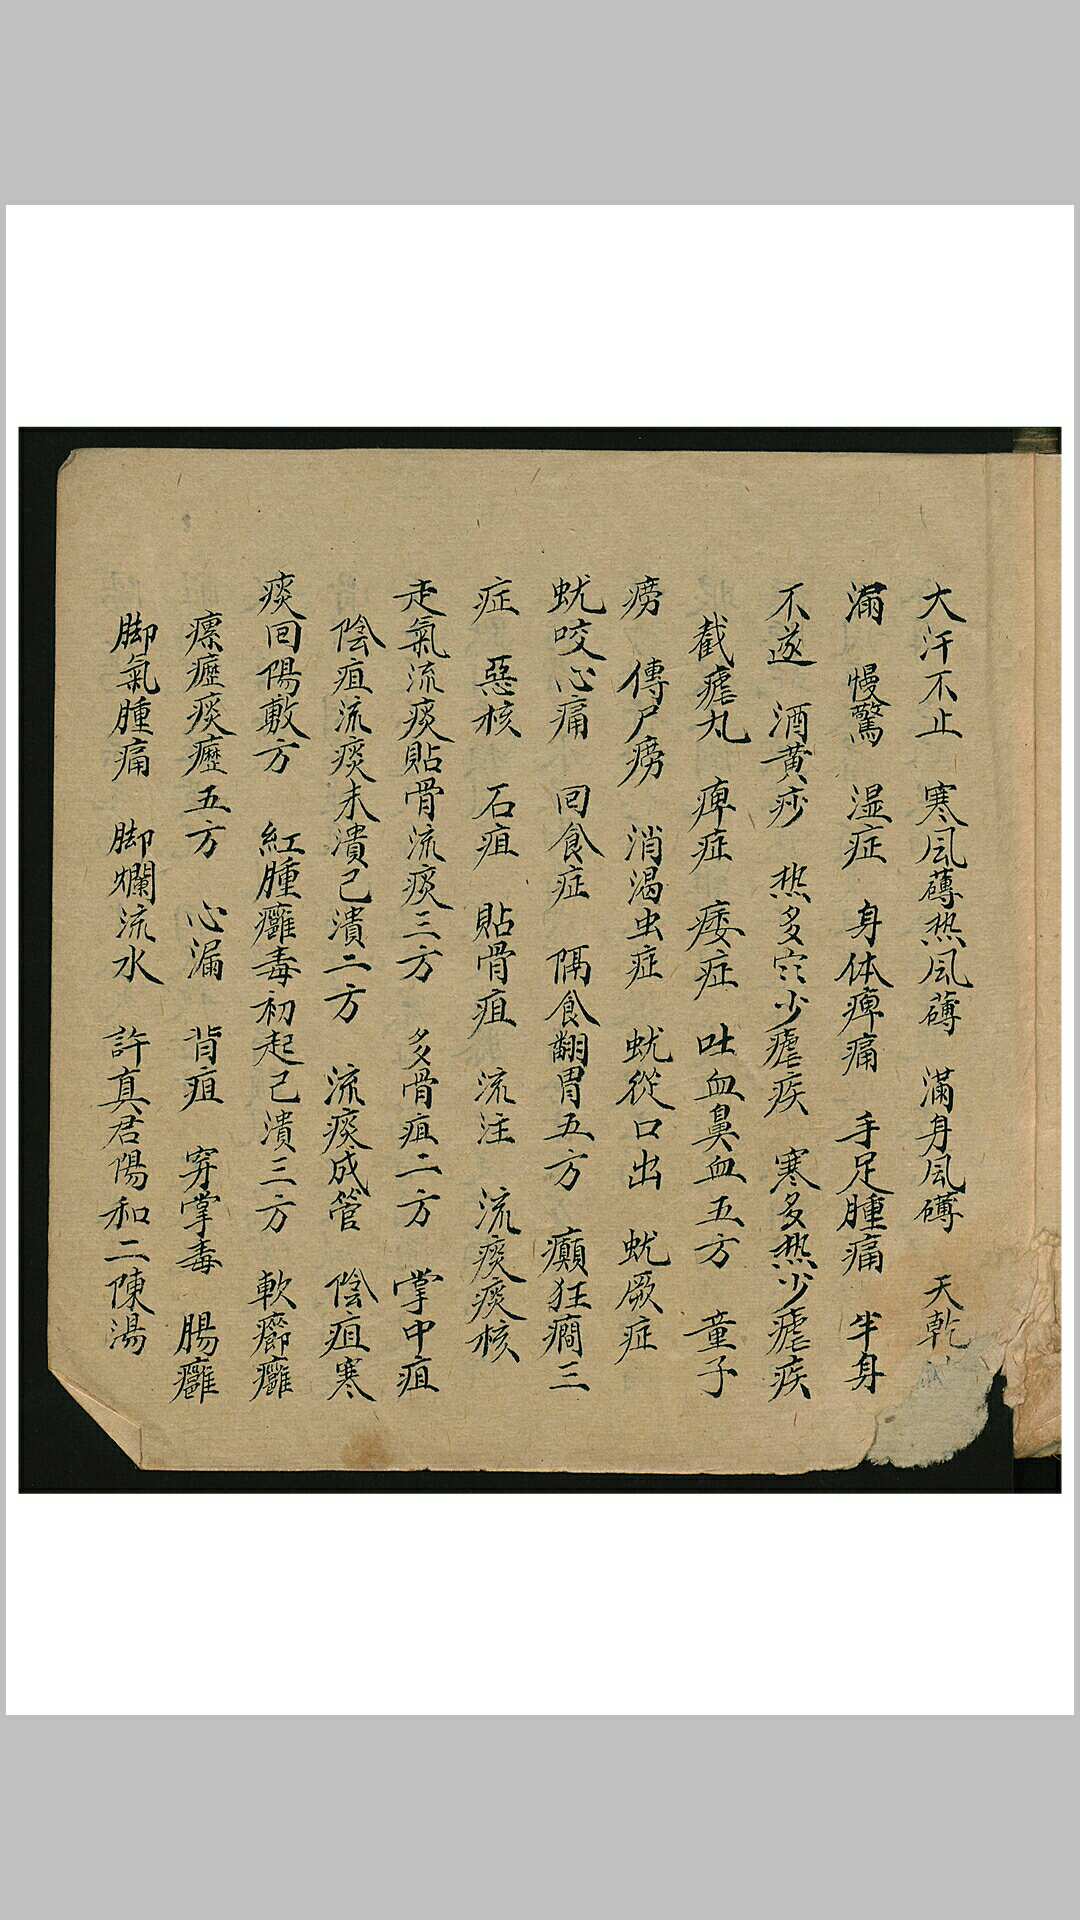 大汗不止　寒風𤺋热風𤺋　滿身風𤺋　天乾
漏　慢驚　湿症　身体痺痛　手足腫痛　半身
不遂　酒黄痧　热多寒少瘧疾　寒多热少瘧疾
截瘧丸　痺症　痿症　吐血鼻血五方　童子
痨　傳尸痨　消渴虫症　蚘從口出　蚘厥症
蚘咬心痛　回食症　隔食翻胃五方　癲狂癇三
症　惡核　石疽　貼骨疽　流注　流痰痰核
走氣流痰貼骨流痰三方　多骨疽二方　掌中疽
陰疽流痰未潰已潰二方　流痰成管　陰疽寒
痰回陽敷方　紅腫癰毒初起已潰三方　軟癤癰
瘰癧痰癧五方　心漏　背疽　穿掌毒　腸癰
脚氣腫痛　脚爛流水　許真君陽和二陳湯